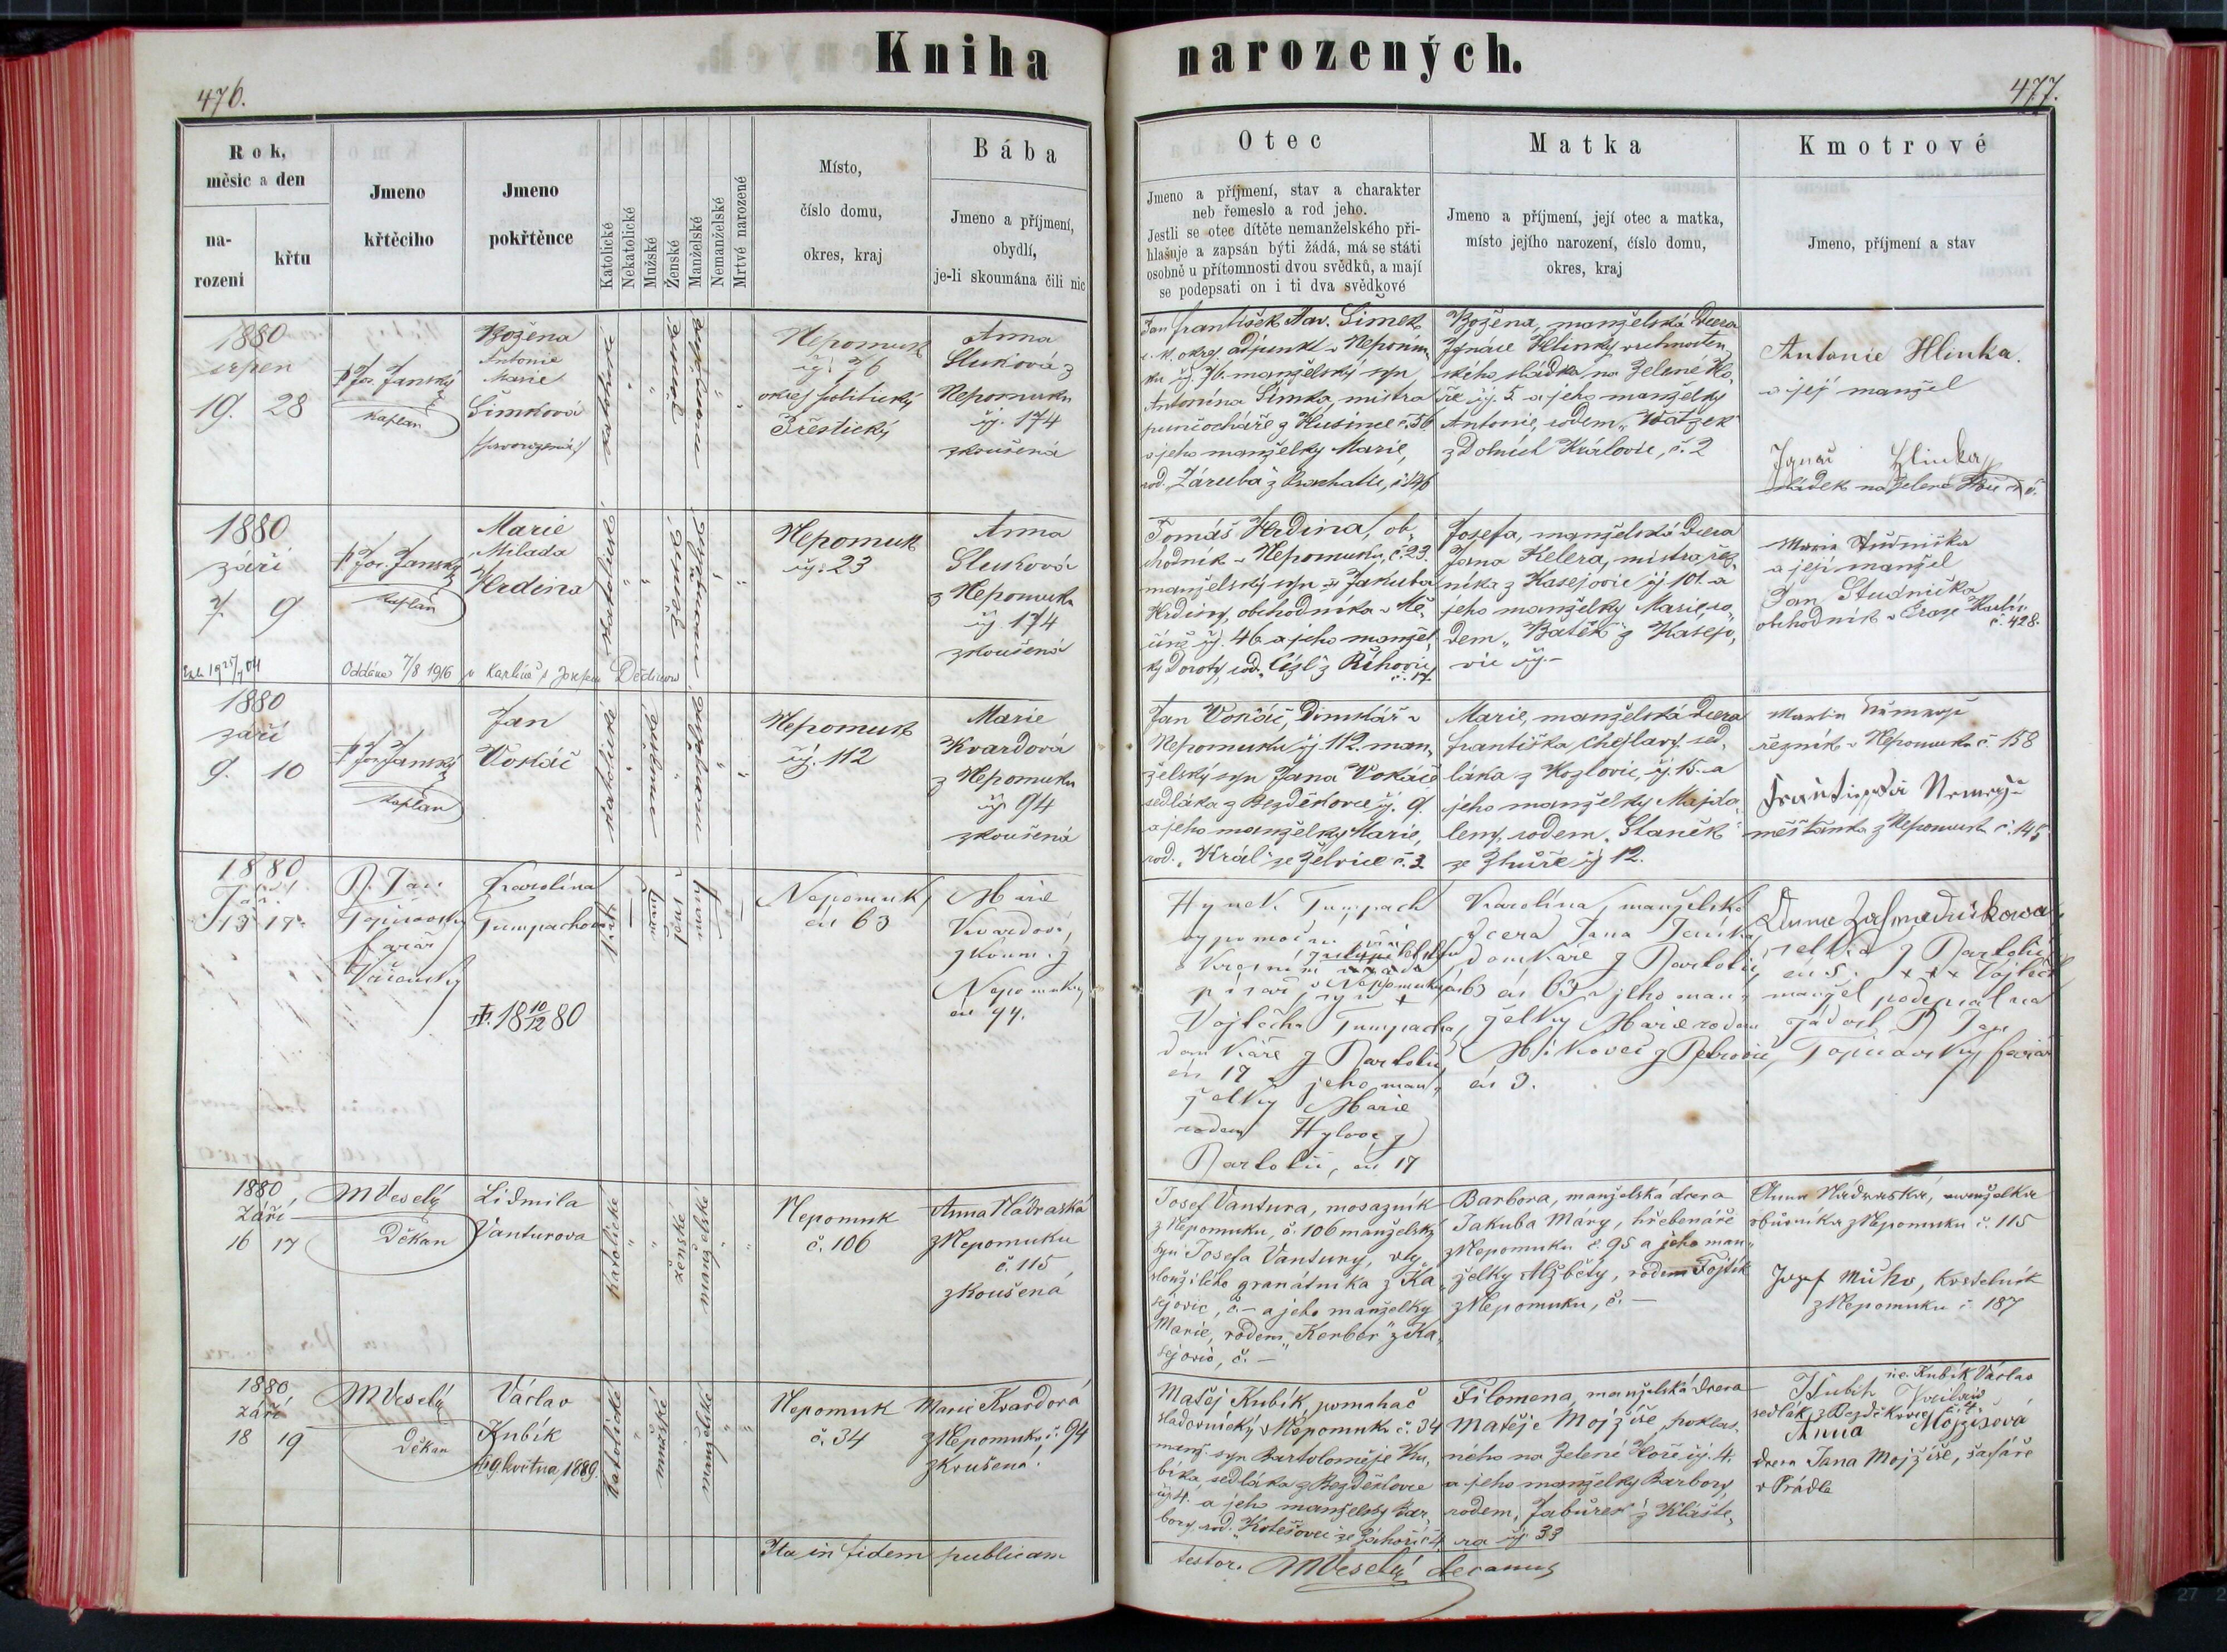 Kniha narozených.
476.
477.
Rok,
měsíc a den
na-
rozeni
křtu
Jmeno
křtěcího
Jmeno
pokřtěnce
Katolické
Nekatolické
Mužské
Ženské
Manželské
Nemanželské
Mrtvé narozené
Místo,
číslo domu,
okres, kraj
Bába
Jmeno a příjmení,
obydlí,
je-li skoumána čili nic
Otec
Jmeno a příjmení, stav a charakter
neb řemeslo a rod jeho.
Jestli se otec dítěte nemanželského při-
hlašuje a zapsán býti žádá, má se státi
osobně u přítomnosti dvou svědků, a mají
se podepsati on i ti dva svědkové
Matka
Jmeno a příjmení, její otec a matka,
místo jejího narození, číslo domu,
okres, kraj
Kmotrové
Jmeno, příjmení a stav
1880
srpen
19. 28
Jos. Janský
kaplan
Božena
Antonie
Marie
Šimková
katolické
ženské
Nepomuk
čj. 76
okres politický
Přestický
Anna
Sluková z
Nepomuku
čj. 174
zkoušená
Jan František Šimek
c. k. okres. adjunkt v Nepomu-
ku čj. 76. manželský syn
Antonína Šimka, mistra
punčocháře z Husince č. 56
a jeho manželky Marie,
rod. Záruba z č. 146
Božena, manželská dcera
Ignáce Hlinky
ského sládka na Zelené Ho-
ře čj. 5. a jeho manželky
Antonie, rodem „Watzek
z Dolních Královic, č. 2
Antonie Hlinka.
a její manžel
Ignác Hlinka
sládek na Zelené Hoře
1880
září
7. 9
Jos. Janský
kaplan
Marie
Milada
Hrdina
katolické
ženské
Nepomuk
čj. 23
Anna
Sluková
z Nepomuku
čj. 174
zkoušená
Oddána 7/8 1916 v Karlíně s Josefem Dědinou
Tomáš Hrdina, ob-
chodník v Nepomuku, č. 23.
manželský syn Jakuba
Hrdiny, obchodníka v Mě-
číně čj. 46 a jeho manžel-
ky Doroty, rod. „Císl" z Říhovic,
č. 17.
Josefa, manželská dcera
Jana Kelera, mistra řez-
níka z Kasejovic čj 101. a
jeho manželky Marie, ro-
dem „Bašek" z Kasejo-
vic čj. –
Marie Studnička
a její manžel
Jan Studnička
obchodník v Praze Karlín
č. 428.
1880
září
9. 10
Jos. Janský
kaplan
Jan
Vokáč
katolické
Nepomuk
čj. 112
Marie
Kvardová
z Nepomuku
čj. 94
zkoušená
Jan Vokáč, domkář v
Nepomuku čj 112. man-
želský syn Jana Vokáče
sedláka z Bezděkovce čj. 9.
a jeho manželky Marie,
rod. „Král" ze Želvice č. 3
Marie, manželská dcera
Františka Chejlavy sed-
láka z Kozlovic, čj. 15. a
jeho manželky Majda-
leny, rodem „Staněk"
ze Zhůře čj 12.
Martin
řezník v Nepomuku č. 158
Františka
měšťanka z Nepomuku č. 145
1880
Září
13 17.
P. Jan
farář
Karolína
Tumpachova
10/12 1880
Nepomuk
čís 63
Marie
Kvardová,
zkoum. z
Nepomuku
čís 94.
Hynek Tumpach
výpomocný
písař, v Nepomuku čís 63
syn
Vojtěcha Tumpacha,
domkáře z Partoltic
čís 17 a jeho man-
želky Marie
rodem
Partoltic, čís 17
Karolína, manželská
dcera Jana
domkáře z Partoltic,
čís 63 a jeho man-
želky Marie rodem
z Petrovic,
čís 3.
Anna
selka z Partoltic
čís 5. × × × Vojtěch
manžel podepsal na
žádost P. Jan
farář
1880,
Září
16 17
MVeselý
Děkan
Lidmila
Vanturova
katolické
ženské
manželské
Nepomuk
č. 106
Anna Nádraská
z Nepomuku
č. 115
zkoušená
Josef Vantura, mosazník
z Nepomuku, č. 106 manželský
syn Josefa Vantury, vy-
sloužilého granátníka z Ka-
sejovic, č. – a jeho manželky
Marie, rodem „Kerber" z Ka-
sejovic, č. –
Barbora, manželská dcera
Jakuba Máry, hřebenáře
z Nepomuku č. 95 a jeho man-
želky Alžběty, rodem Fojtík
z Nepomuku, č. –
Anna Nádraská, manželka
obuvníka z Nepomuku č. 115
Josef Mucha, kostelník
z Nepomuku č 187
1880,
září
18 19
MVeselý
Děkan
Václav
Kubík
†19 května 1889
katolické
mužské
manželské
Nepomuk
č. 34
Marie Kvardová
z Nepomuku, č. 94
zkoušená.
Matěj Kubík, pomahač
sladovnický v Nepomuku č. 34
manž. syn Bartoloměje Ku-
bíka, sedláka z Bezděkovce
čj. 4. a jeho manželky Bar-
bory, rod. „Kotešovec ze Záhoří č 4
Filomena, manželská dcera
Matěje Mojžíše, poklas-
ného na Zelené Hoře čj. 4.
a jeho manželky Barbory,
rodem „Jabůrek" z Klášte-
ra čj 33
Kubík Václav
sedlák z Bezděkovce č. 4.
Anna Mojžíšová
dcera Jana Mojžíše, šafáře
v Prádle
Ita in fidem publicam
testor. MVeselý decanus